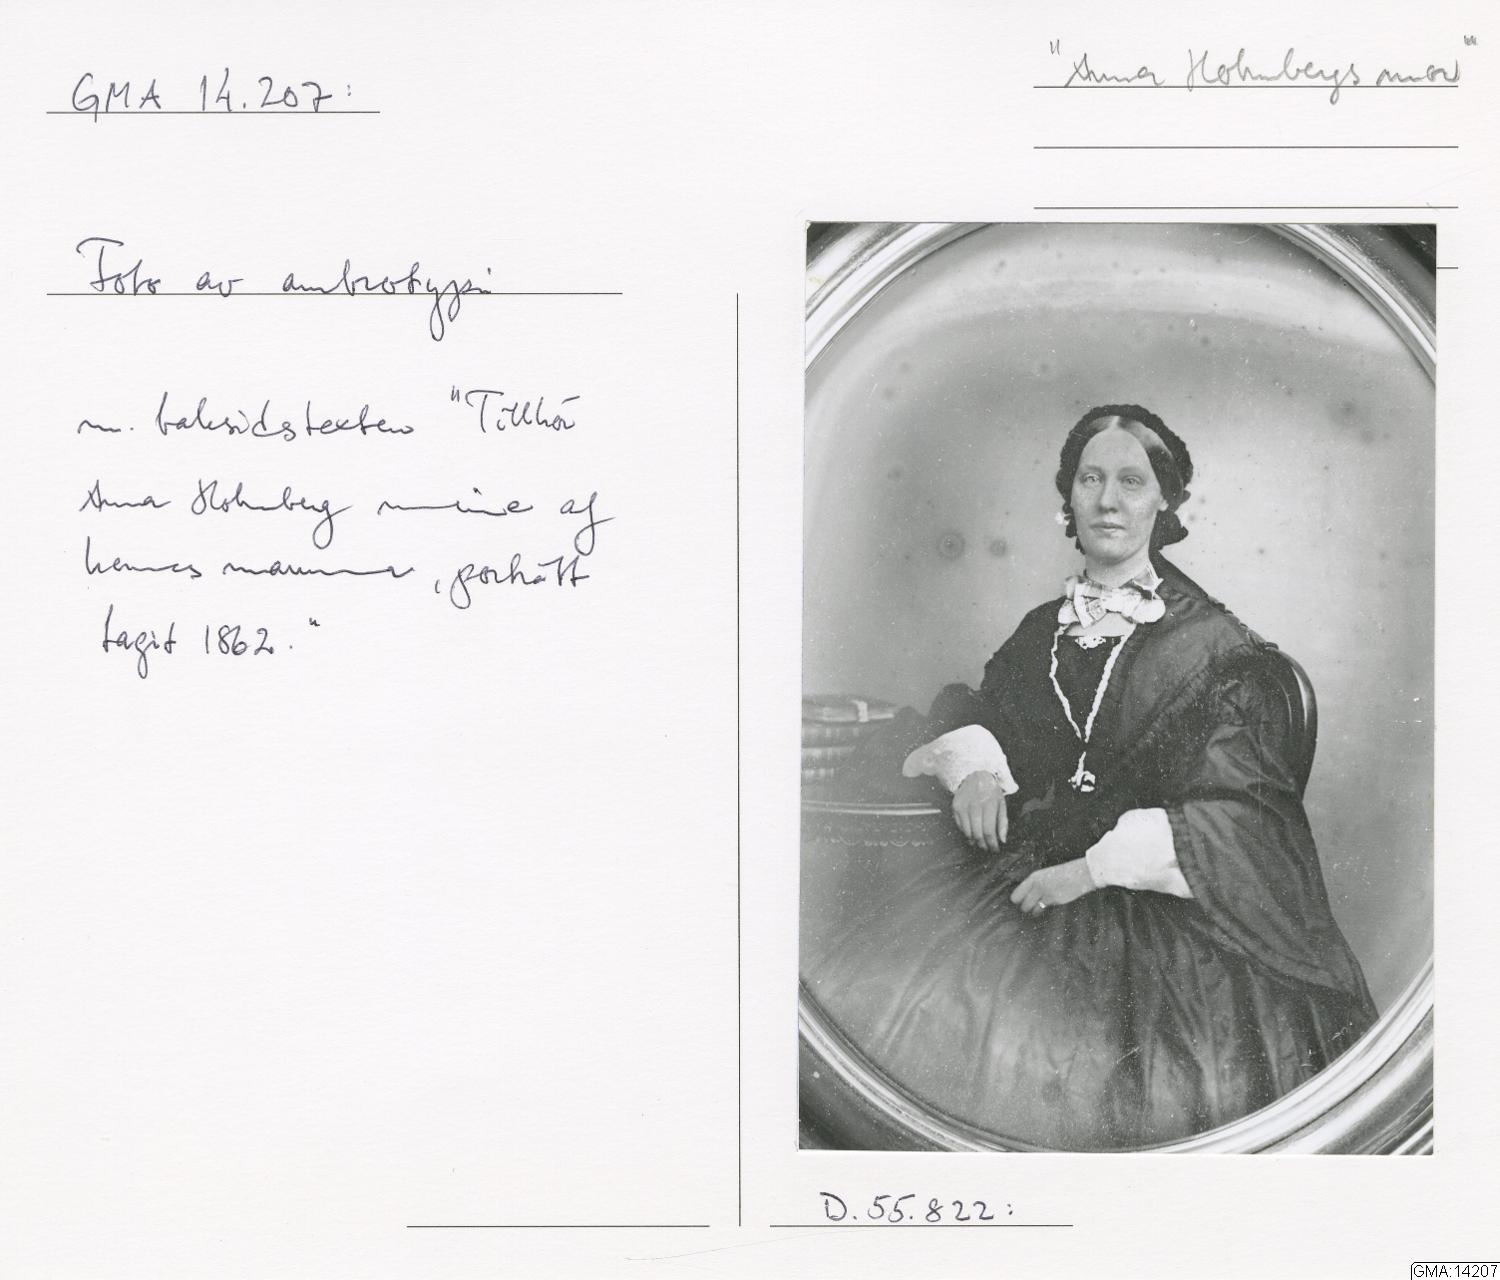 GMA 14.207:
"Anna Holmbergs mor"
Foto av ambrotypi
m. baksidstexten "Tillhör
Anna Holmberg minne af
hennes mamma, porträtt
tagit 1862."
D.55.822:
GMA:14207